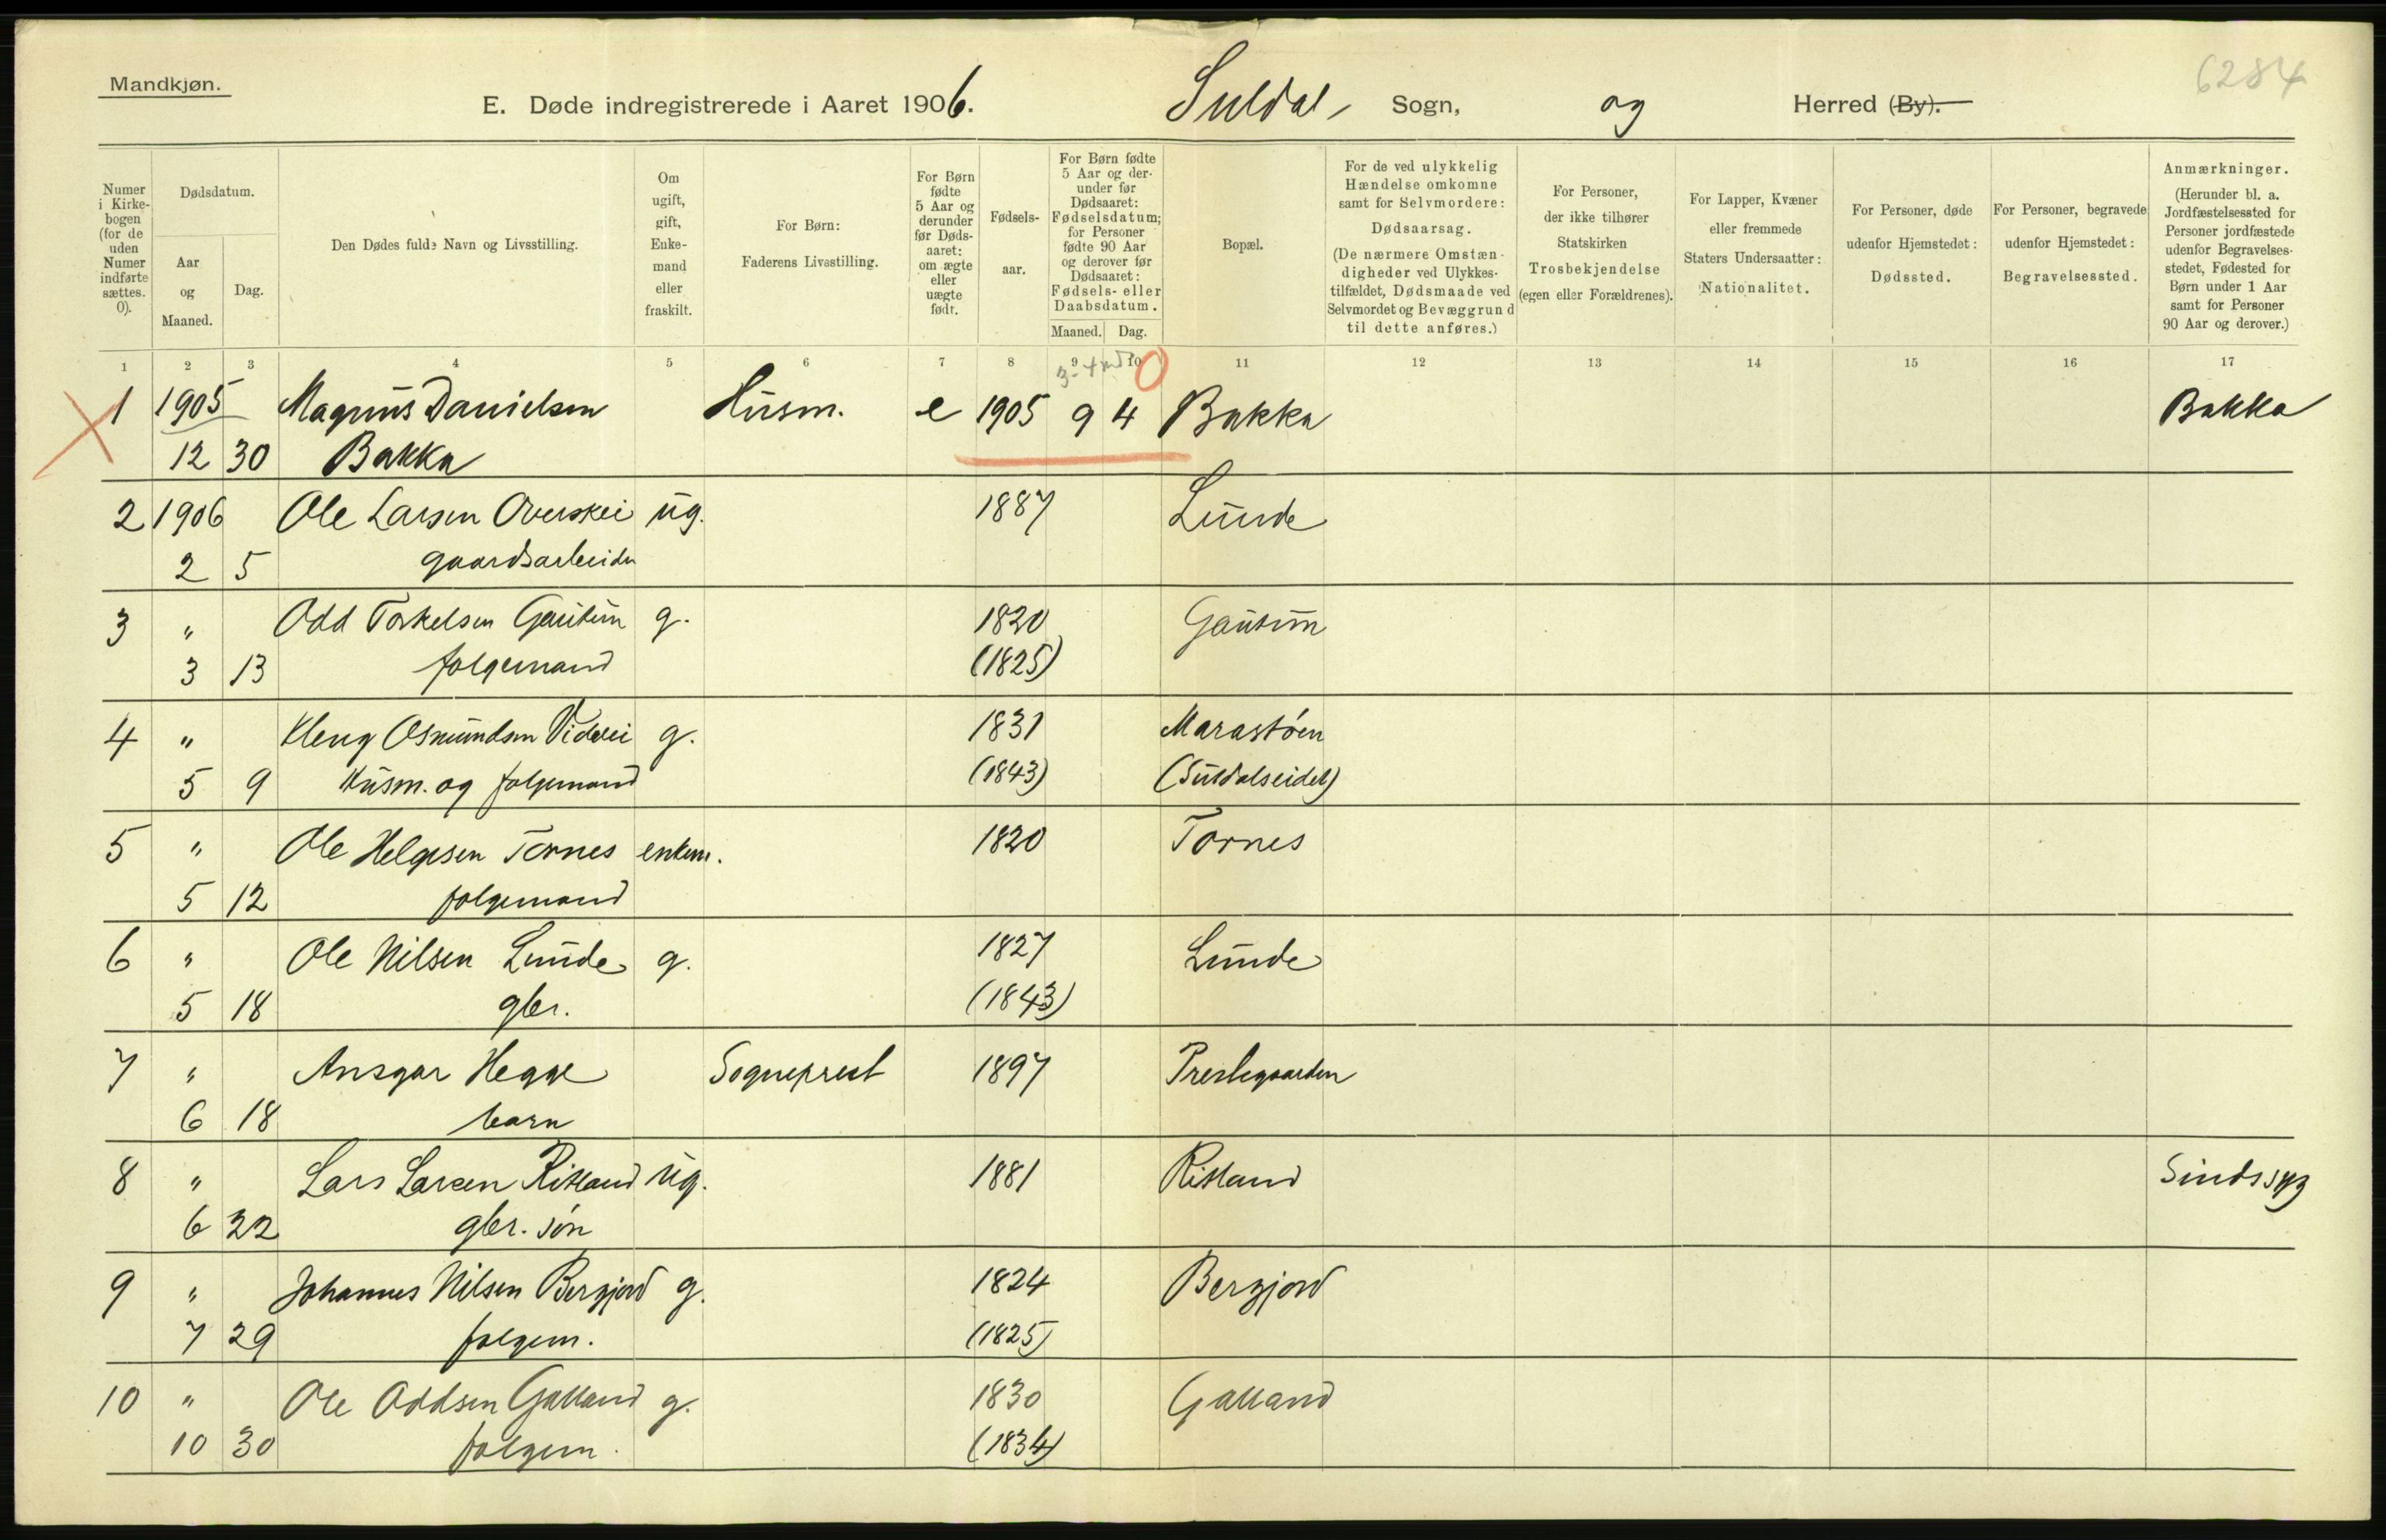 Mandkjøn.
6284
E. Døde indregistrerede i Aaret 1906. Suldal, Sogn, og Herred (By).
Numer i Kirkebogen (for de uden Numer indførte sættes. 0).
Dødsdatum.
Aar og Maaned.
Dag.
Den Dødes fulde Navn og Livsstilling.
Om ugift, gift, Enkemand eller fraskilt.
For Børn: Faderens Livsstilling.
For Børn fødte 5 Aar og derunder før Dødsaaret: om ægte eller uægte født.
Fødselsaar.
For Børn fødte 5 Aar og derunder før Dødsaaret: Fødselsdatum; for Personer fødte 90 Aar og derover før Dødsaaret: Fødsels- eller Daabsdatum.
Maaned. Dag.
Bopæl.
For de ved ulykkelig Hændelse omkomne samt for Selvmordere: Dødsaarsag. (De nærmere Omstændigheder ved Ulykkestilfældet, Dødsmaade ved Selvmordet og Bevæggrund til dette anføres.)
For Personer, der ikke tilhører Statskirken Trosbekjendelse (egen eller Forældrenes).
For Lapper, Kvæner eller fremmede Staters Undersaatter: Nationalitet.
For Personer, døde udenfor Hjemstedet: Dødssted.
For Personer, begravede udenfor Hjemstedet: Begravelsessted.
Anmærkninger. (Herunder bl. a. Jordfæstelsessted for Personer jordfæstede udenfor Begravelsesstedet, Fødested for Børn under 1 Aar samt for Personer 90 Aar og derover.)
1 2 3 4 5 6 7 8 9 10 11 12 13 14 15 16 17
3-4 md 0
1 1905 Magnus Danielsen Husm. e 1905 9 4 Bakka Bakka
12 30 Bakka
2 1906 Ole Larsen Overskei ug. 1887 Lunde
2 5 gaardsarbeider
3 " Odd Torkelsen Gautun g. 1820 Gautun
3 13 folgemand (1825)
4 " Kleng Osmundsen Videlei g. 1831 Marastöen
5 9 Husm. og folgemand (1843) (Suldalseidet)
5 " Ole Helgesen Tornes enkem. 1820 Tornes
5 12 folgemand
6 " Ole Nilsen Lunde g. 1827 Lunde
5 18 gbr. (1843)
7 " Ansgar Hegge Sogneprest 1897 Prestegaarden
6 18 barn
8 " Lars Larsen Ritland ug. 1881 Ritland Sindssyg
6 22 gbr. sön
9 " Johannes Nilsen Bergjord g. 1824 Bergjord
7 29 folgem. (1825)
10 " Ole Oddsen Galland g. 1830 Galland
10 30 folgem. (1834)